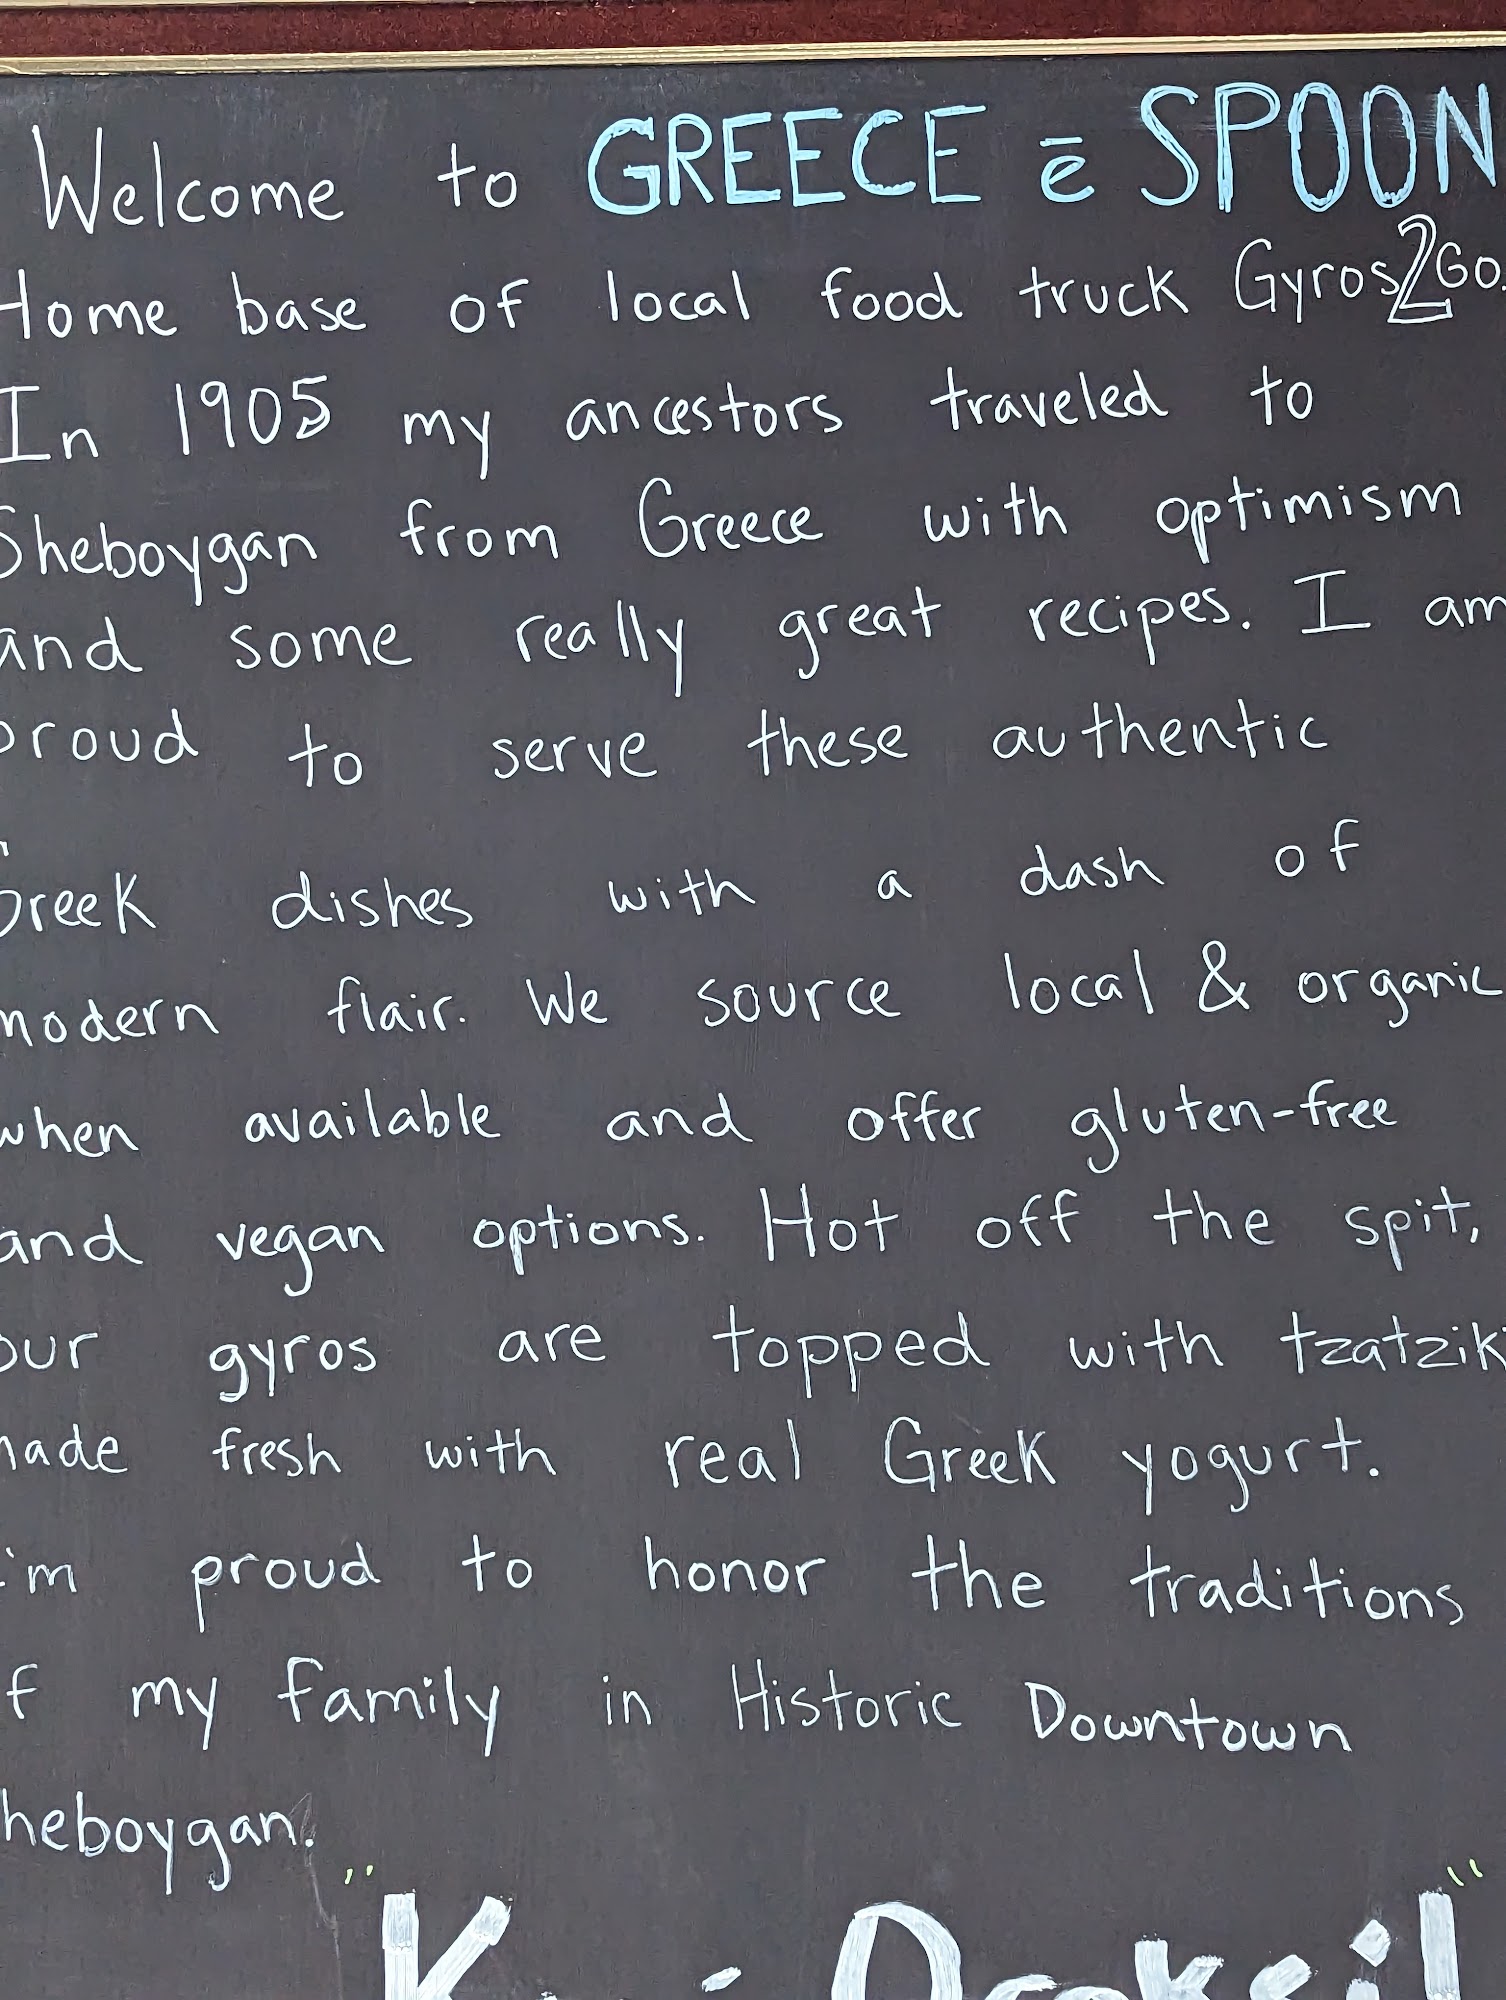 Welcome to GREECE ē SPOON
Home base of local food truck Gyros2Go.
In 1905 my ancestors traveled to
Sheboygan from Greece with optimism
and some really great recipes. I am
proud to serve these authentic
Greek dishes with a dash of
modern flair. We source local & organic
when available and offer gluten-free
and vegan options. Hot off the spit,
our gyros are topped with tzatziki
made fresh with real Greek yogurt.
I'm proud to honor the traditions
of my family in Historic Downtown
Sheboygan.